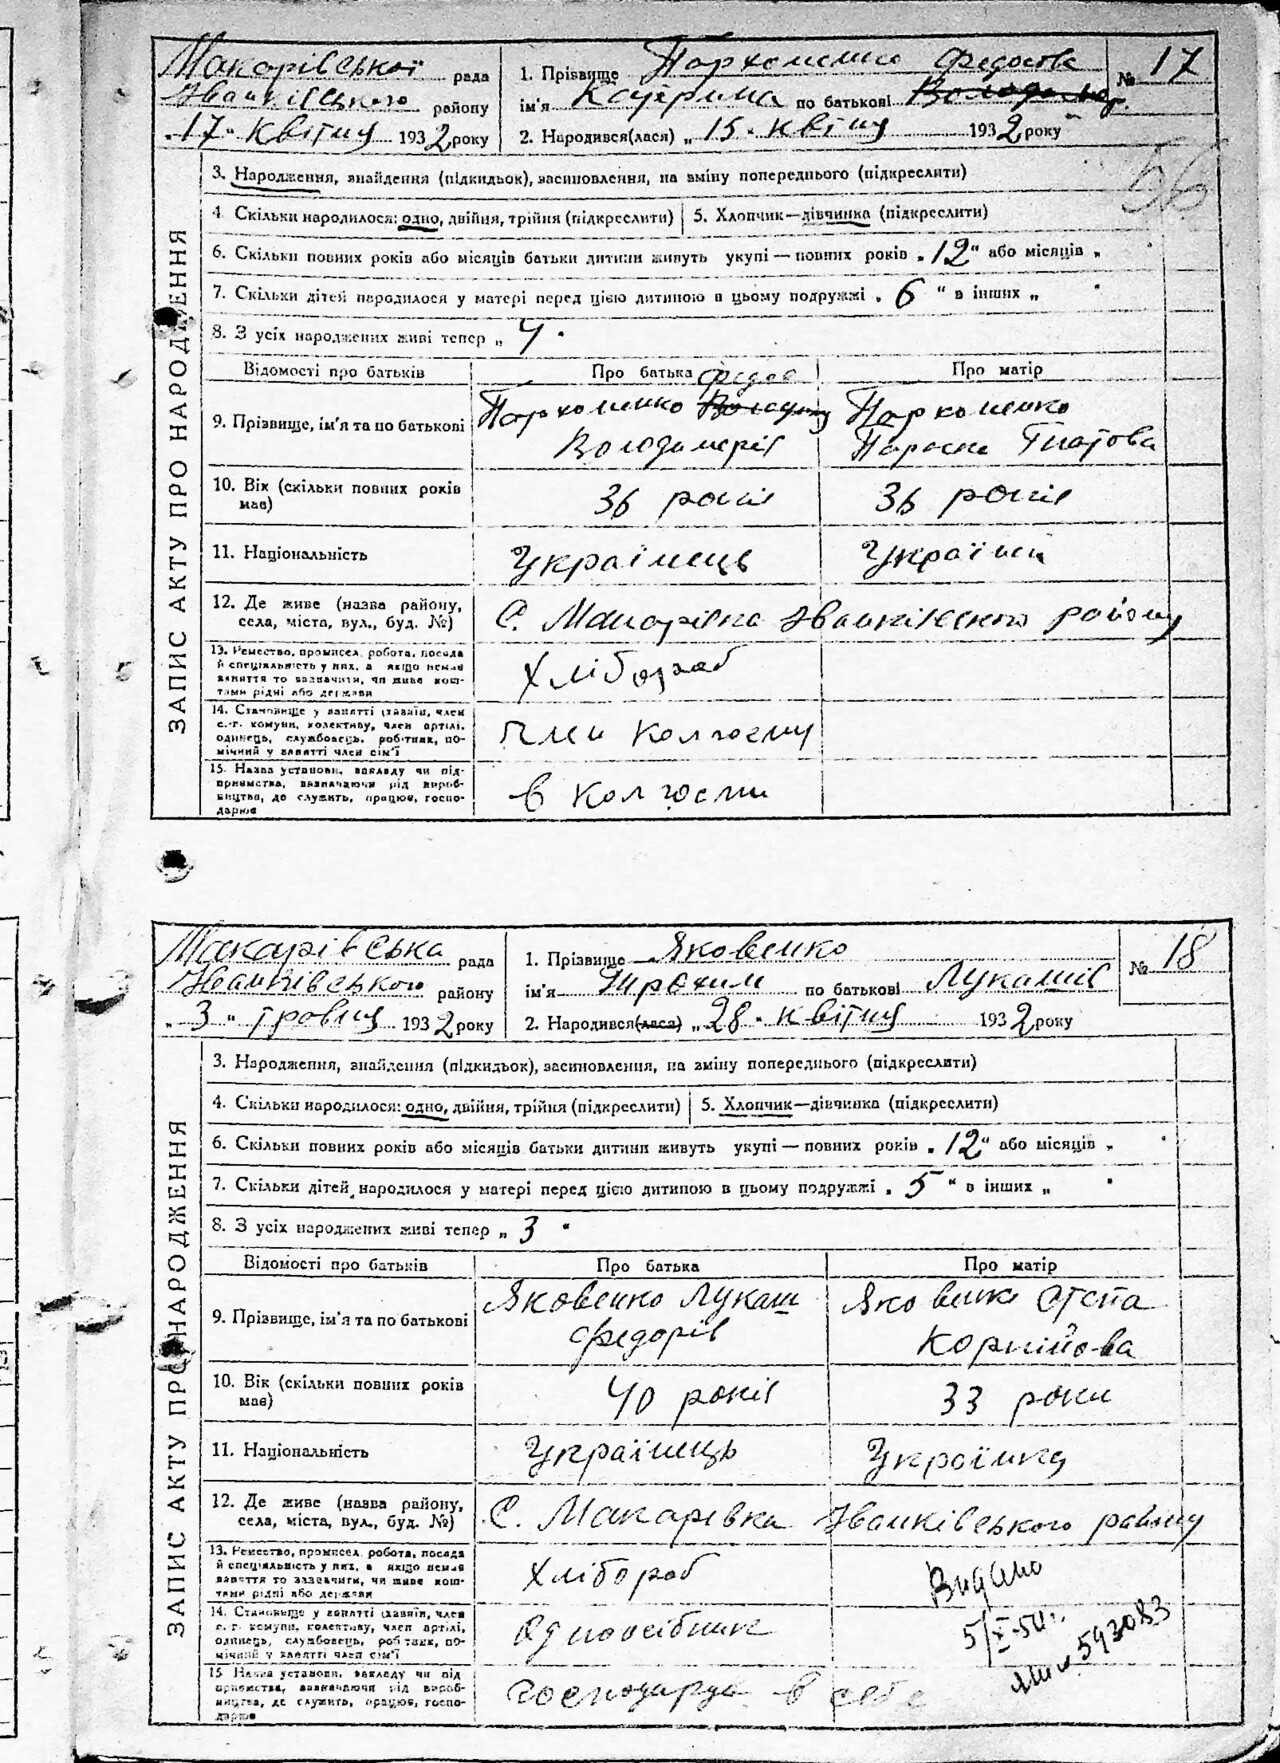 Макарівської рада
Іванківського району
„17“ Квітня 1932 року
1. Прізвище Пархоменко Федосова
ім'я Катерина по батькові Володимер
№ 17
2. Народився(лася) „15“ квітня 1932 року
56
ЗАПИС АКТУ ПРО НАРОДЖЕННЯ
3. Народження, знайдення (підкидьок), засиновлення, на зміну попереднього (підкреслити)
4. Скільки народилося: одно, двійня, трійня (підкреслити) 5. Хлопчик—дівчинка (підкреслити)
6. Скільки повних років або місяців батьки дитини живуть укупі — повних років „12“ або місяців „
7. Скільки дітей народилося у матері перед цією дитиною в цьому подружжі „6“ в інших „
8. З усіх народжених живі тепер „4“
Відомості про батьків Про батька Про матір
9. Прізвище, ім'я та по батькові
Пархоменко
Володимерів
Пархоменко
Параска Гнатова
10. Вік (скільки повних років має) 36 років 36 років
11. Національність Українець Україн
12. Де живе (назва району, села, міста, вул., буд. №) С. Макарівка Іванківського району
13. Ремество, промисел, робота, посада й спеціяльність у них, а якщо немає заняття то зазначити, чи живе коштами рідні або держави
Хлібороб
14. Становище у занятті (хазяїн, член с.-г. комуни, колективу, член артілі, одинець, службовець, робітник, помічний у занятті член сім'ї
член колгоспу
15. Назва установи, закладу чи підприємства, зазначаючи рід виробництва, де служить, працює, господарює
в колгоспи
Макарівська рада
Іванківського району
„3“ травня 1932 року
1. Прізвище Яковенко
ім'я Трохим по батькові Лукашів
№ 18
2. Народився(лася) „28“ квітня 1932 року
ЗАПИС АКТУ ПРО НАРОДЖЕННЯ
3. Народження, знайдення (підкидьок), засиновлення, на зміну попереднього (підкреслити)
4. Скільки народилося: одно, двійня, трійня (підкреслити) 5. Хлопчик—дівчинка (підкреслити)
6. Скільки повних років або місяців батьки дитини живуть укупі — повних років „12“ або місяців „
7. Скільки дітей народилося у матері перед цією дитиною в цьому подружжі „5“ в інших „
8. З усіх народжених живі тепер „3“
Відомості про батьків Про батька Про матір
9. Прізвище, ім'я та по батькові
Яковенко Лукаш
Федорів
Яковенко
Корнійова
10. Вік (скільки повних років має) 40 років 33 роки
11. Національність Українець Українка
12. Де живе (назва району, села, міста, вул., буд. №) С. Макарівка Іванківського району
13. Ремество, промисел, робота, посада й спеціяльність у них, а якщо немає заняття то зазначити, чи живе коштами рідні або держави
Хлібороб
14. Становище у занятті (хазяїн, член с.-г. комуни, колективу, член артілі, одинець, службовець, робітник, помічний у занятті член сім'ї
Одноосібник
15. Назва установи, закладу чи підприємства, зазначаючи рід виробництва, де служить, працює, господарює
господарує в себе
Видано
593083